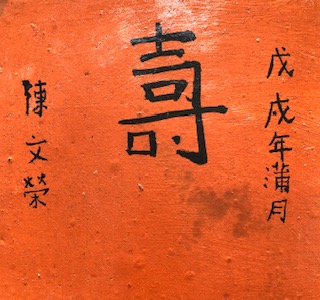 戊戌年蒲月
壽
陳文榮